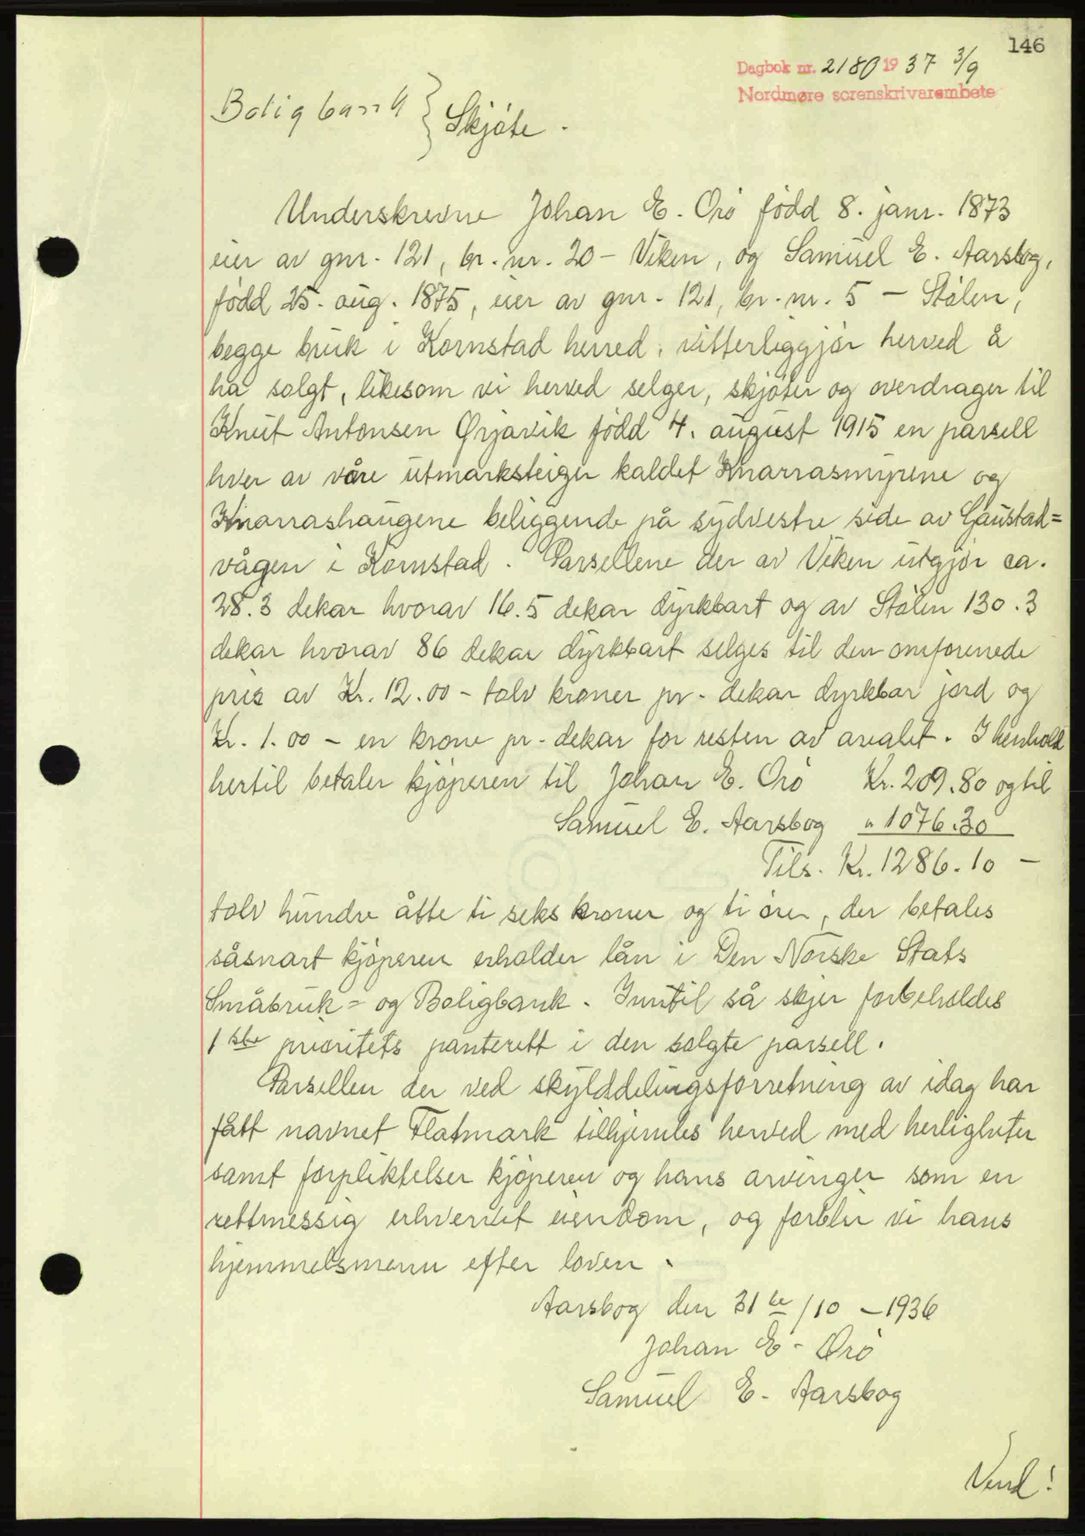 146
Dagbok nr. 2180 1937 3/9
Nordmøre sorenskriverembete
Boligbank } Skjøte.
Underskrevne Johan E. Orö född 8. janr. 1873
eier av gnr. 121, br. nr. 20 - Viken, og Samuel E. Aarsbog,
född 25. aug. 1875, eier av gnr. 121, br. nr. 5 - Stölen,
begge bruk i Kornstad herred, vitterliggjör herved å
ha solgt, likesom vi herved selger, skjöter og overdrager til
Knut Antonsen Ørjavik född 4. august 1915 en parsell
hver av våre utmarksteiger kaldet Knarrasmyrene og
Knarrashaugene beliggende på sydvestre side av Gaustad=
vågen i Kornstad. Parsellene der av Viken utgjör ca.
28.3 dekar hvorav 16.5 dekar dyrkbart og av Stölen 130.3
dekar hvorav 86 dekar dyrkbart selges til den omforenede
pris av Kr. 12.00 - tolv kroner pr. dekar dyrkbar jord og
Kr. 1.00 - en krone pr. dekar for resten av arealet. I henhold
hertil betaler kjöperen til Johan E. Orö Kr. 209.80 og til
Samuel E. Aarsbog " 1076.30
Tils. Kr. 1286.10 -
tolv hundre åtte ti seks kroner og ti örer, der betales
såsnart kjöperen erholder lån i Den Norske Stats
Småbruk= og Boligbank. Inntil så skjer forbeholdes
1ste prioritets panterett i den solgte parsell.
Parsellen der ved skylddelingsforretning av idag har
fått navnet Flatmark tilhjemles herved med herligheter
samt forpliktelser kjöperen og hans arvinger som en
rettmessig erhvervet eiendom, og forblir vi hans
hjemmelsmenn efter loven.
Aarsbog den 31te/10 - 1936
Johan E. Orö
Samuel E. Aarsbog
Vend!